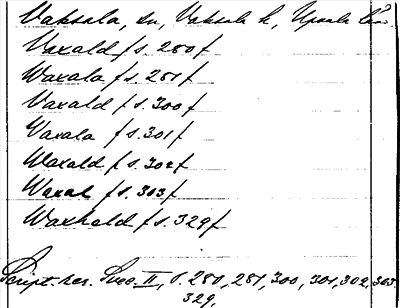 Vaksala, sn, Vaksala h, Upsala län
Vaxald f s. 280 f
Waxala f s. 281 f
Vaxald f s. 300 f
Vaxala f s. 301 f
Waxald f s. 302 f
Waxal f s. 303 f
Waxhald f s. 329 f
Script. rer. Svec. II, s. 280, 281, 300, 301, 302, 303
329.